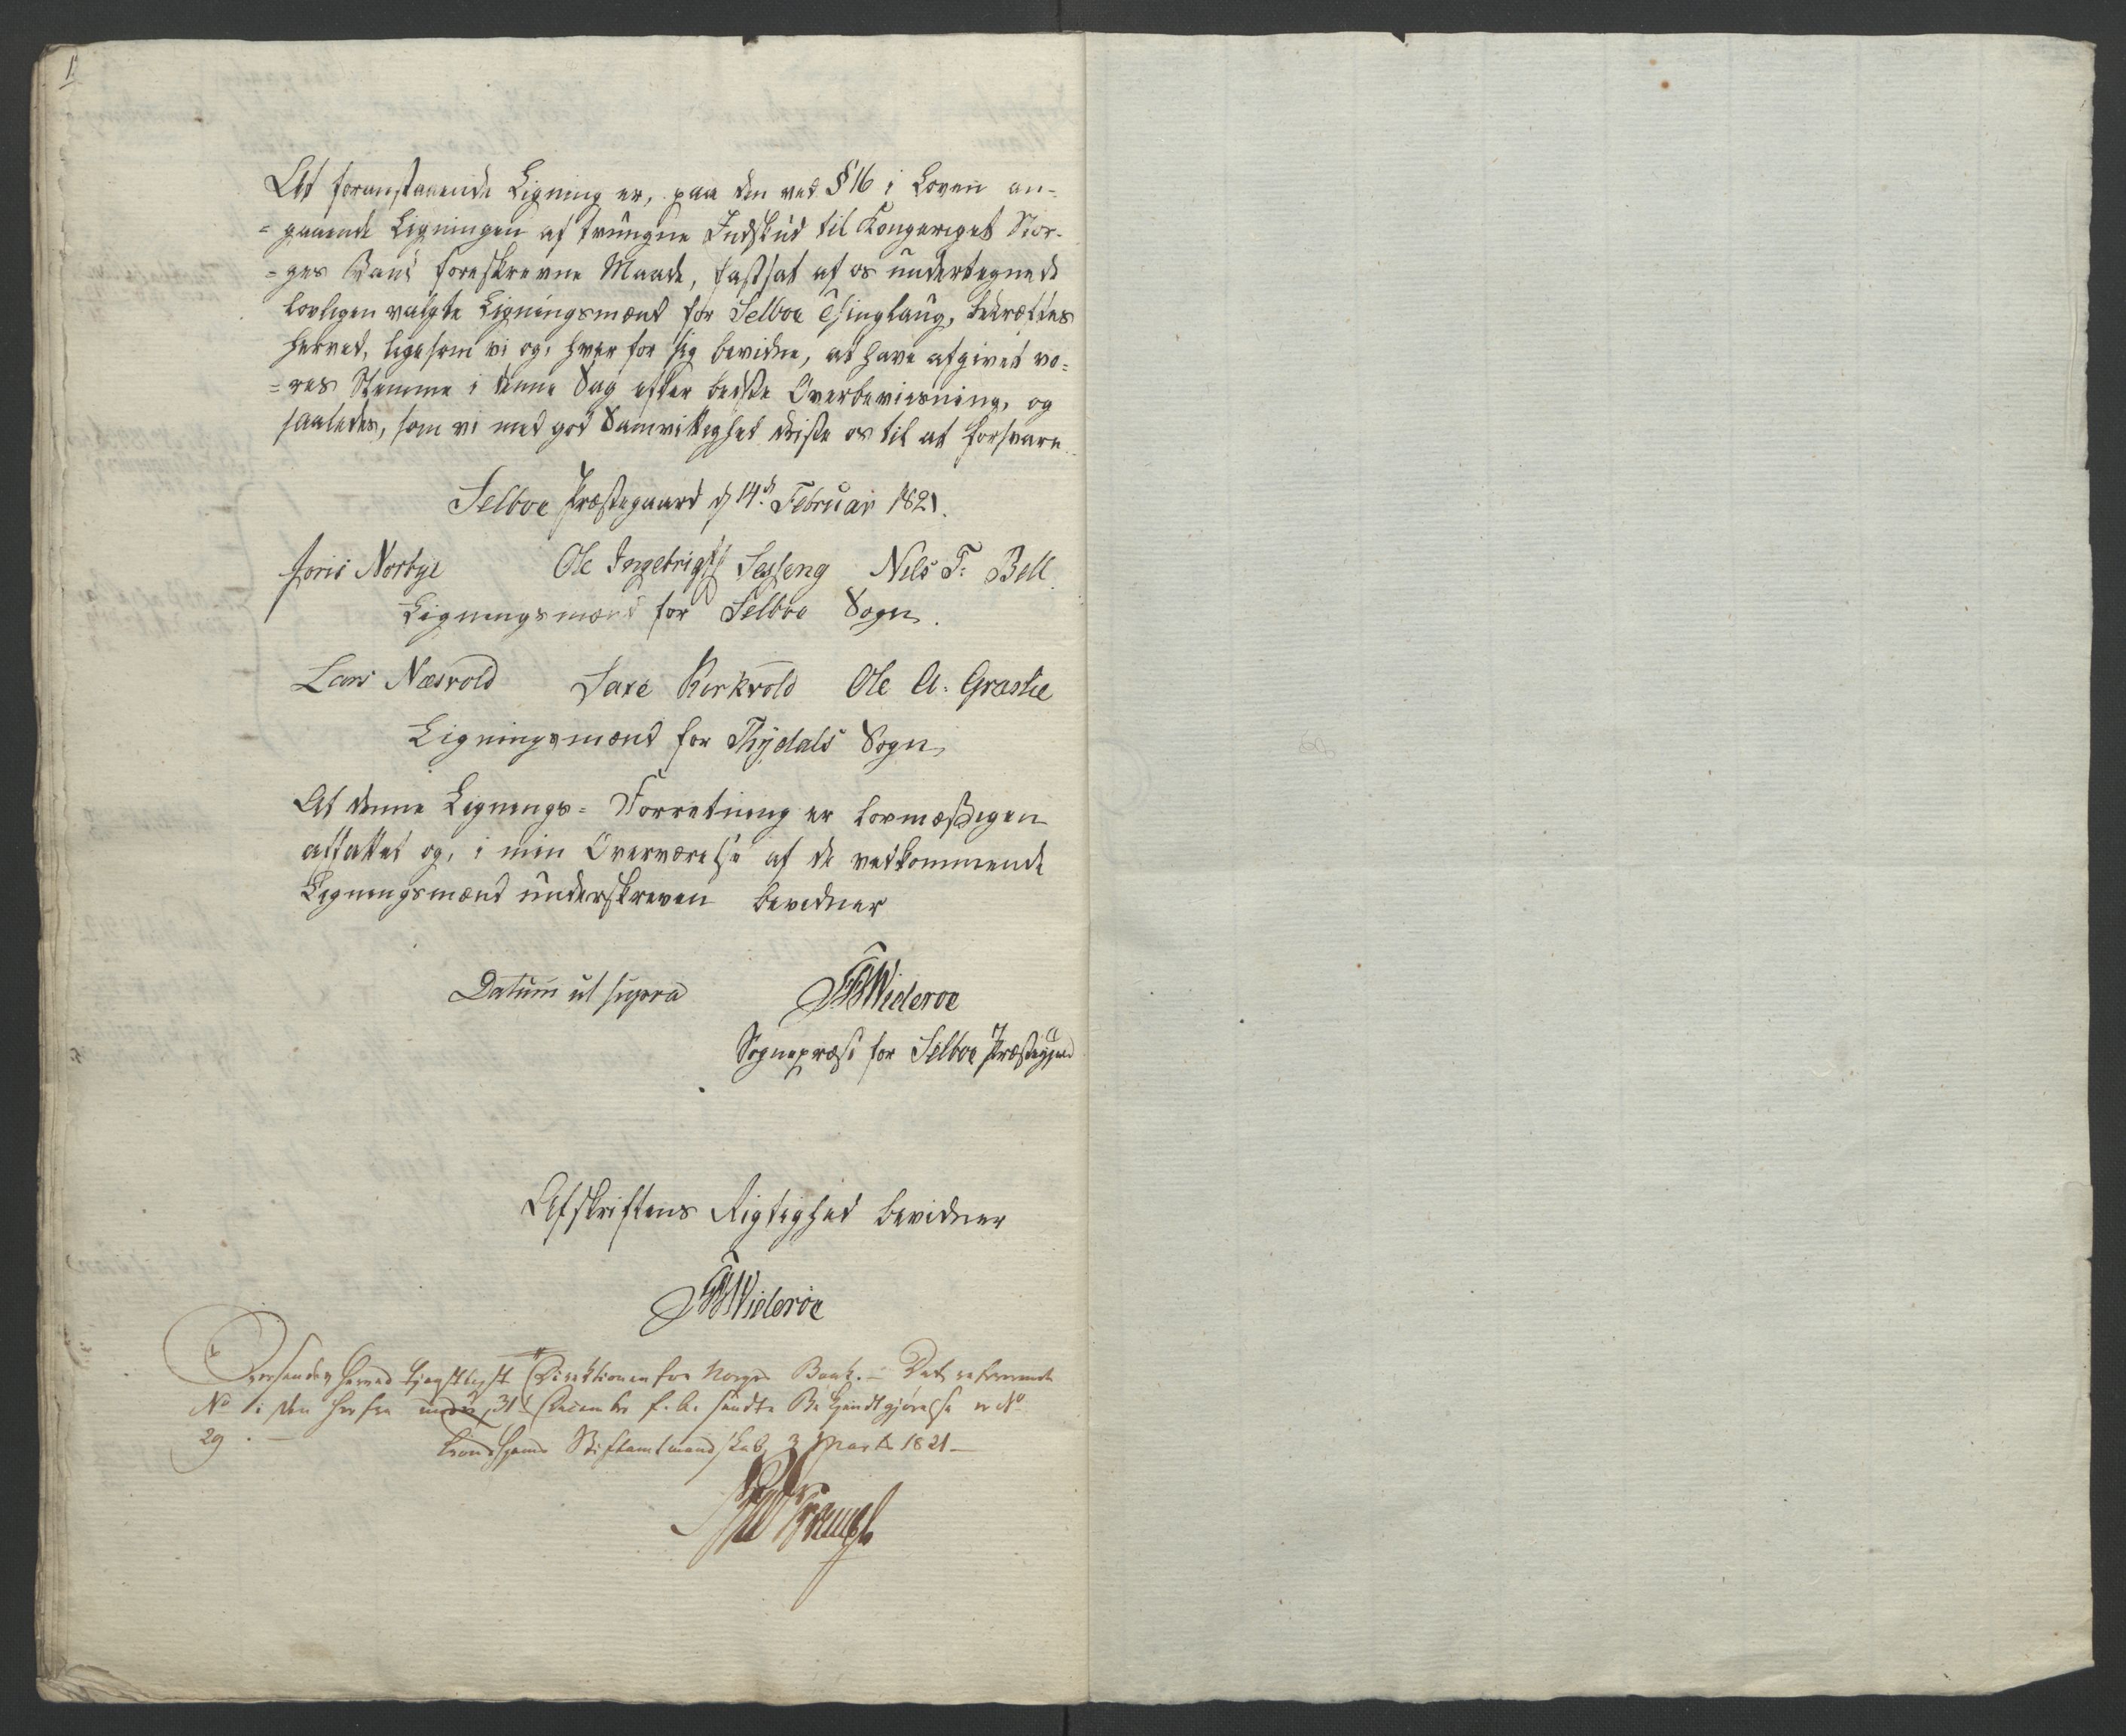 At foranstaaende Ligning er, paa den ved § 16 i Loven an-
=gaaende Ligningen af tvungne Indskud til Kongeriget Nor-
=ges Bank foreskrevne Maade, fastsat af os undertegnede
lovligen valgte Ligningsmænd for Selboe Thinglaug, bekræftes
herved, ligesom vi og, hver for sig bevidne, at have afgivet vo=
=res Stemme i denne Sag efter bedste Overbeviisning, og
saaledes, som vi med god Samvittighed driste os til at forsvare.
Selboe Præstegaard d 14d Februar 1821.
Joris Norbye Ole Ingebrigts Sesseng Nils T. Bell
Ligningsmænd for Selboe Sogn.
Lars Næsvold Saxe Kirkvold Ole A. Græslie
Ligningsmænd for Thydals Sogn
At denne Lignings=Forretning er lovmæssigen
affattet og, i min Overværelse af de vedkommende
Ligningsmænd underskreven bevidner
Datum ut supra Wideroe
Sognepræst for Selboe Præstegjeld
Afskriftens Rigtighed bevidner
Wideroe
Oversendes herved tjenstligst Direktionen for Norges Bank. - Det refererende
No i den herfra under 31 December f. A. sendte Bekjendtgjørelse er No
29. -
Trondhjems Stiftamtmandskab 3 Marts 1821 -